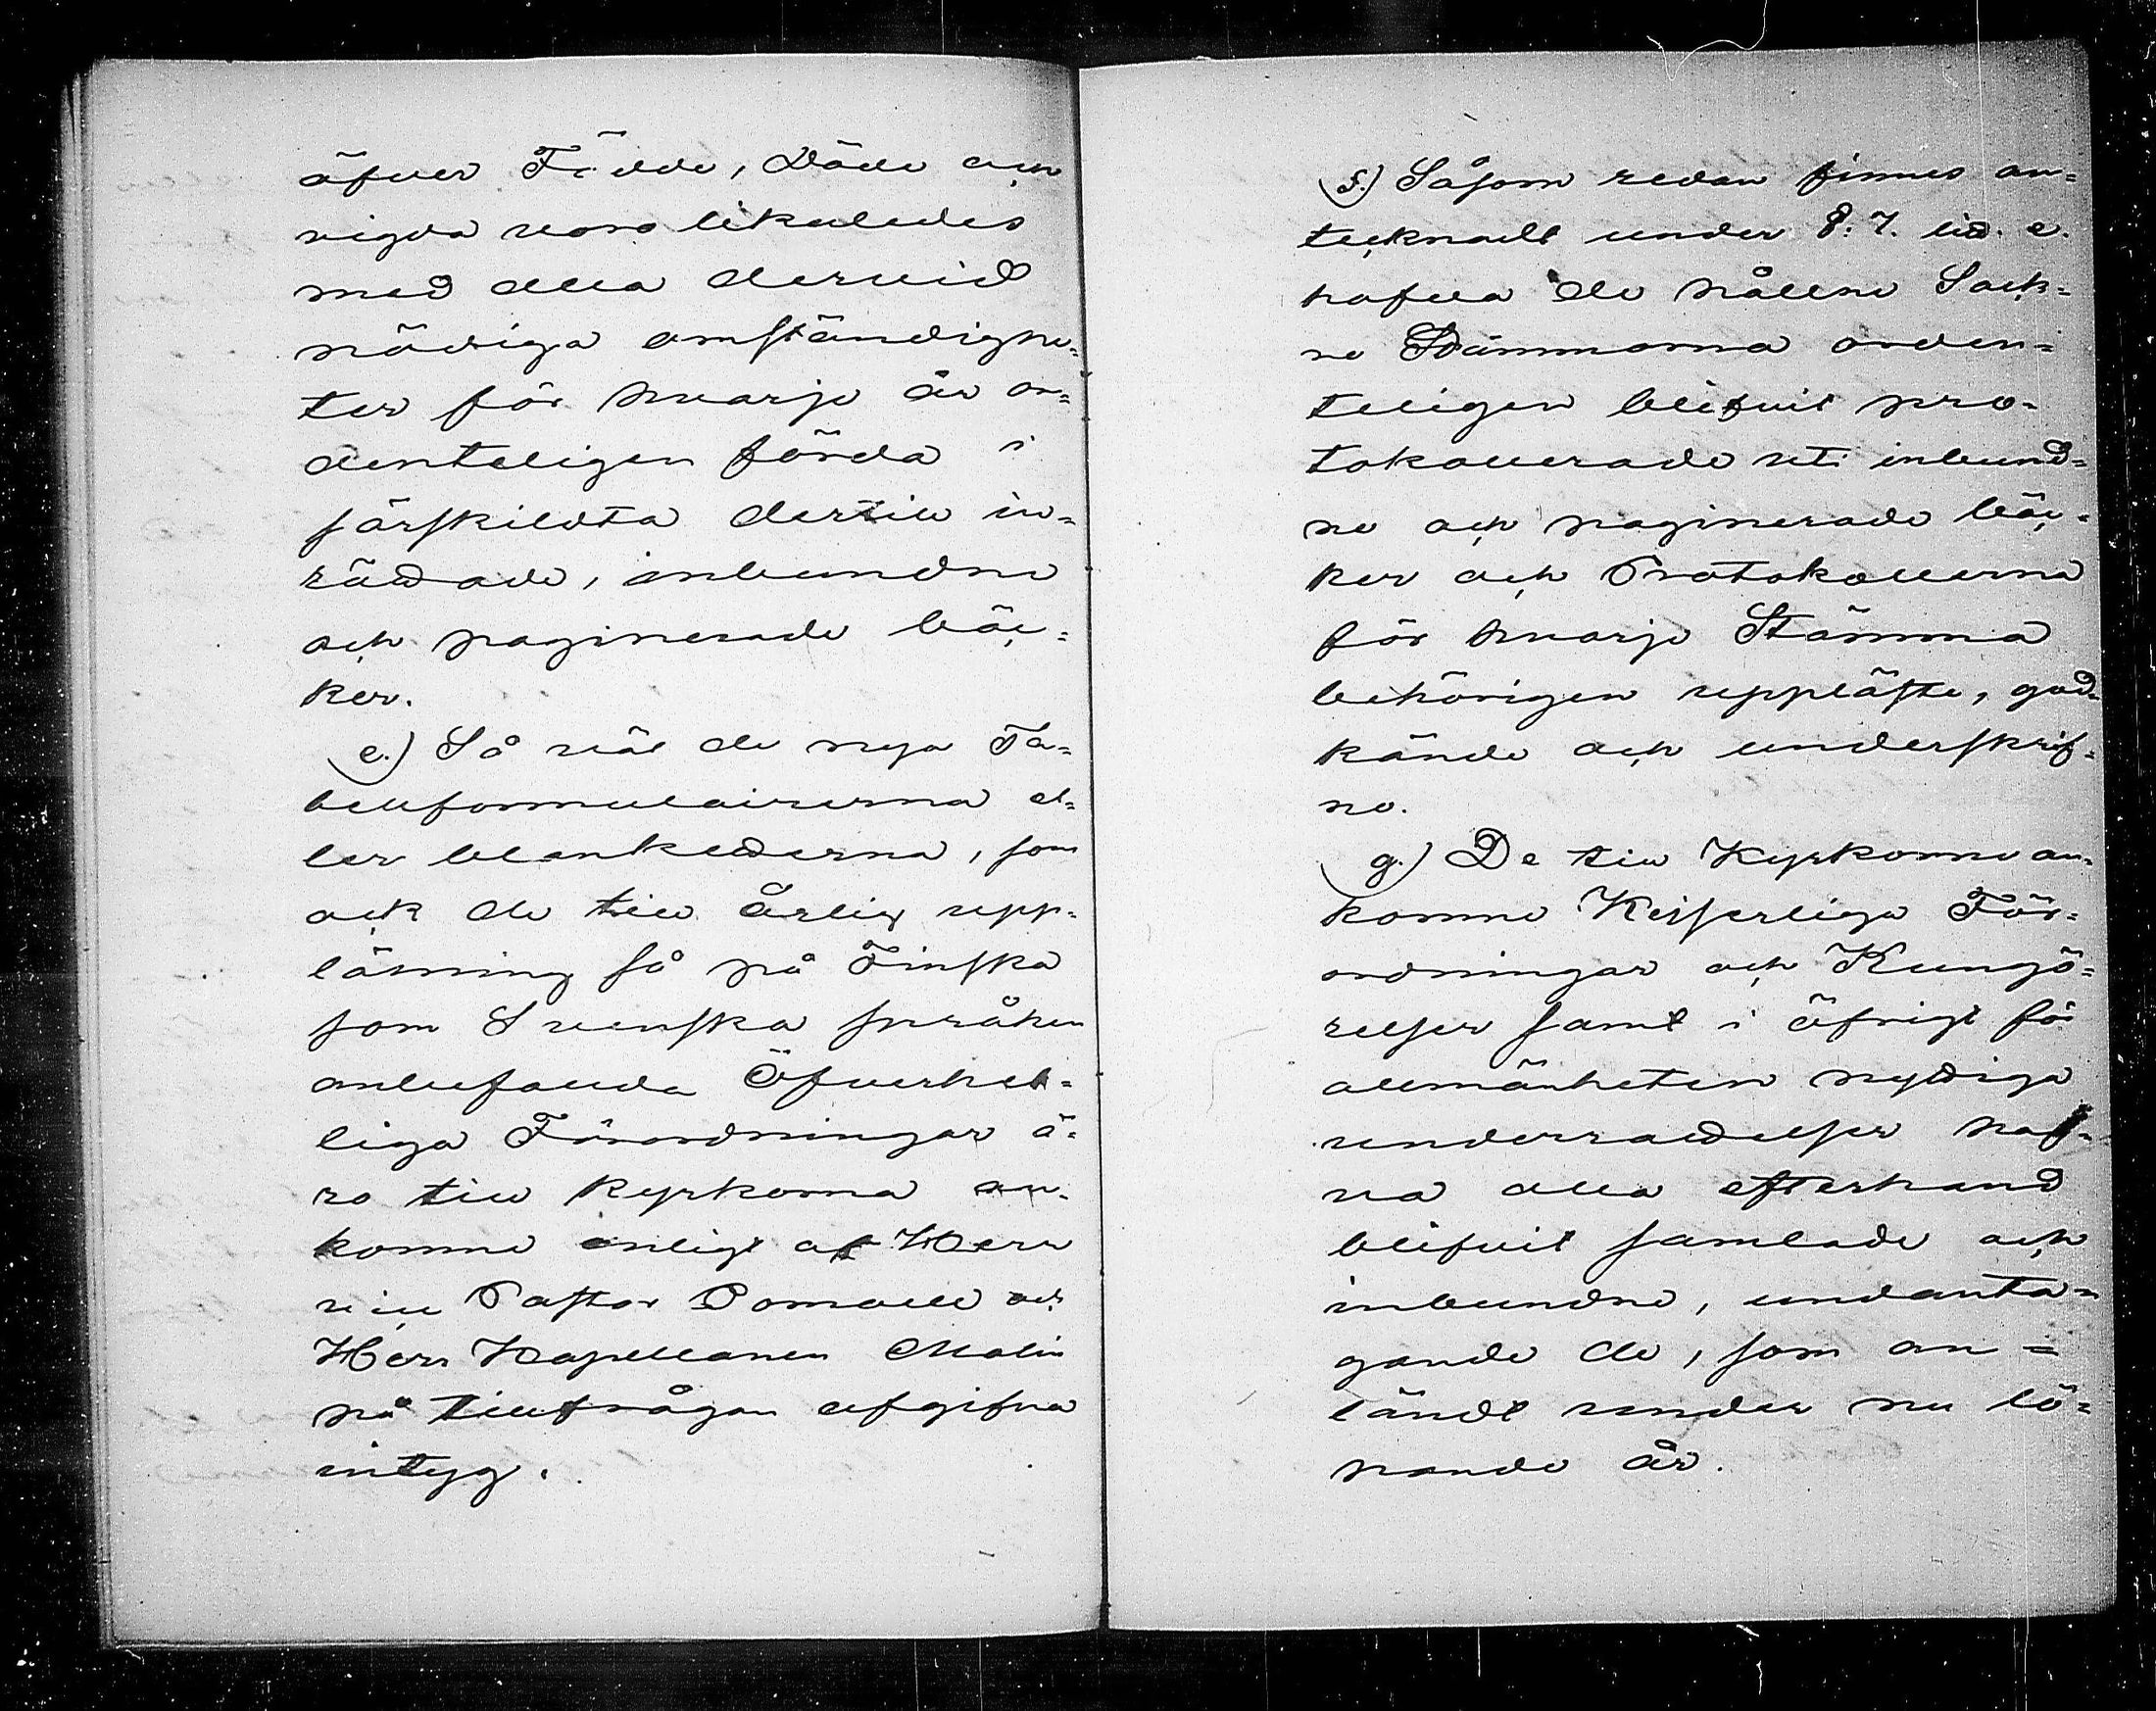 öfver Födde, Döde och
vigda voro likaledes
med alla dervid
nödiga omständighe=
ter för hvarje år or=
denteligen förda i
särskildta dertill in=
rättade, inbundne
och paginerade böc=
ker.
e.) Så väl de nya Ta=
bellformulairerna el=
ler blanketterna, som
ock de till årlig upp=
läsning så på Finska
som Svenska språken
anbefallda Öfverhet=
liga Förordningar ä=
ro till kyrkorna an=
komne enligt af Herr
vice Pastor Pomoell och
Herr Kapellanen Malin
på tillfrågan afgifna
intyg.
f.) Såsom redan finnes an=
tecknadt under §: 7. litt. e.
hafva de hållne Sock=
ne Stämmorna orden=
teligen blifvit pro=
tokollerade uti inbund=
ne och paginerade böc=
ker och Protokollerna
för hvarje Stämma
behörigen uppläste, god=
kände och underskrif=
ne.
g.) De till Kyrkorne an=
komne Kejserliga För=
ordningar och Kungö=
relser samt i öfrigt för
allmänheten nyttiga
underrättelser haf=
va alla efterhand
blifvit samlade och
inbundne, undanta=
gande de, som an=
ländt under nu lö=
pande år.